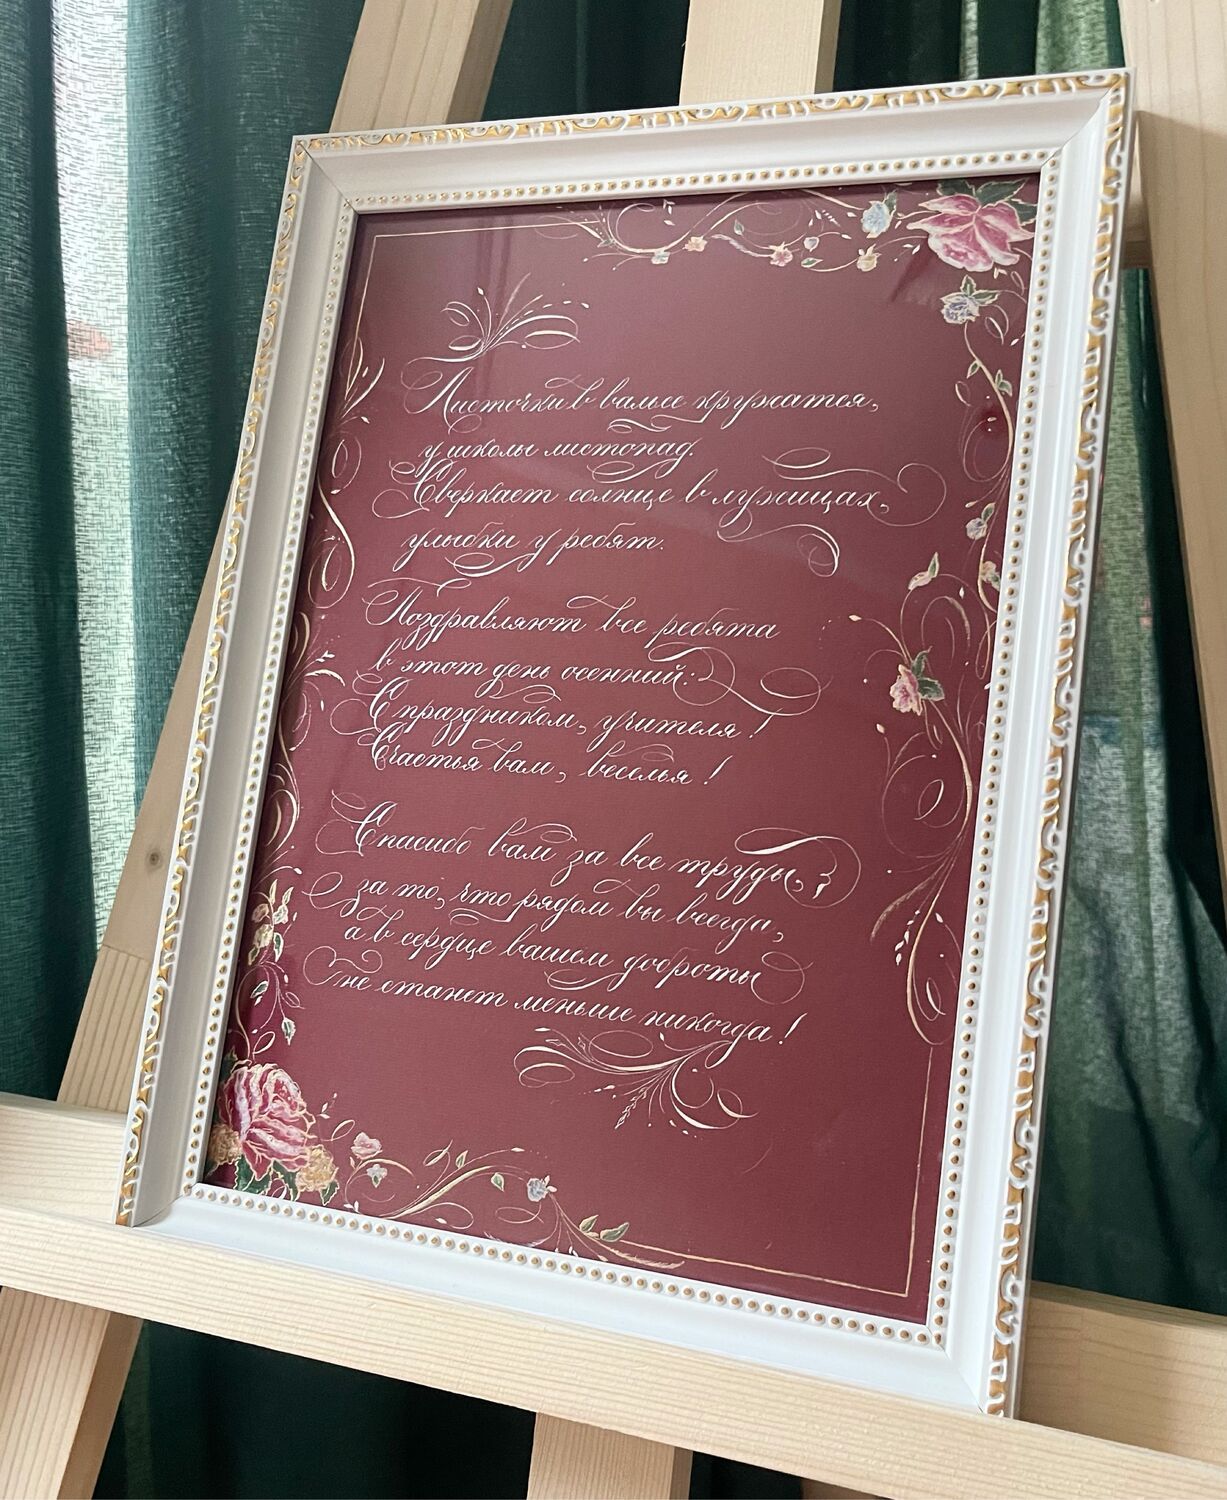 Листочки в вальсе кружатся,
у школы листопад.
Сверкает солнце в лужицах,
улыбки у ребят.
Поздравляют все ребята
в этот день осенний:
С праздником, учителя!
Счастья вам, веселья!
Спасибо вам за все труды,
за то, что рядом вы всегда,
а в сердце вашем доброты
не станет меньше никогда!